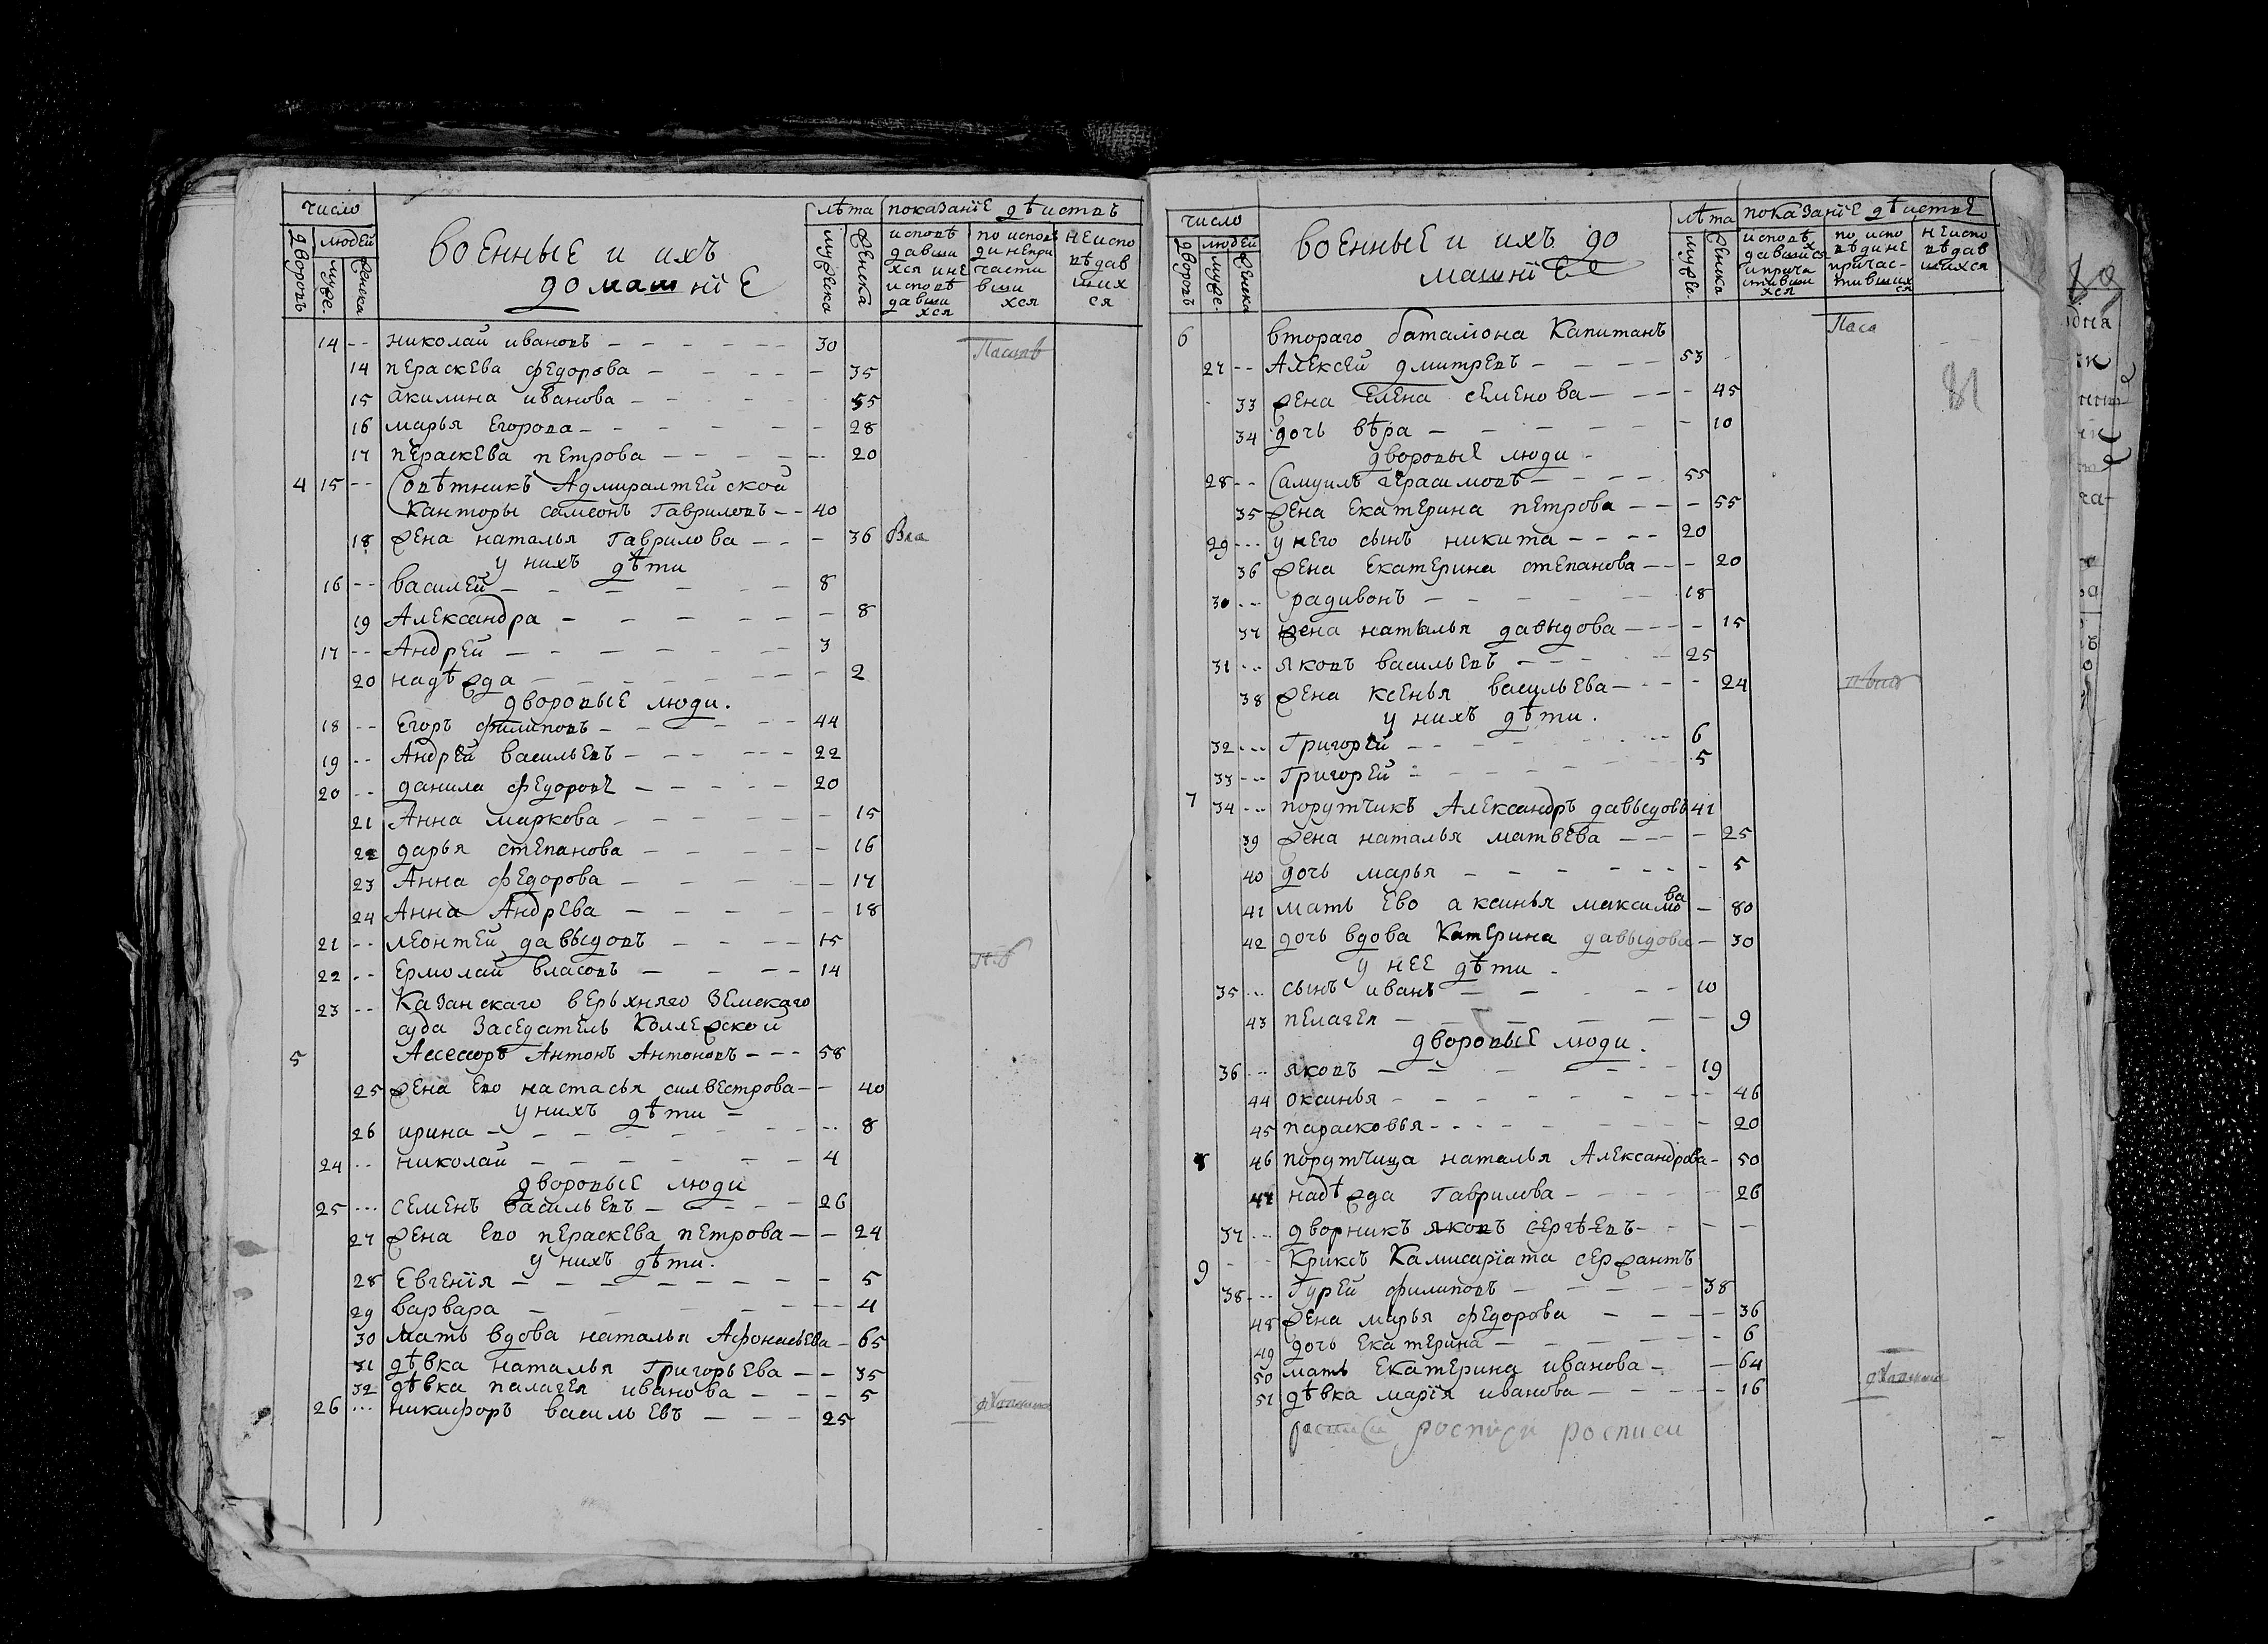 число
лѣта показанiе дѣиствъ
дворовъ
людей
муже.
женска
военные и ихъ
домашнiе
мужека
женска
исповѣ
давши
хся ине
исповѣ
давши
хся
по исповѣ
ди непри
части
вши
хся
неиспо
вѣдав
ших
ся
14 -- николай ивановъ 30
14 пераскева федорова 35
15 акилина иванова 55
16 марья егорова 28
17 пераскева петрова 20
4 15 -- Совѣтникъ Адмиралтейской
Канторы самсонъ Гавриловъ -- 40
18 жена наталья Гаврилова 36
у нихъ дѣти
16 -- василей 8
19 Александра 8
17 -- Андрей 3
20 надѣжда 2
дворовые люди.
18 -- Егоръ филиповъ 44
19 -- Андрей васильевъ 22
20 -- данила федоровъ 20
21 Анна маркова 15
22 дарья степанова 16
23 Анна федорова 17
24 Анна Андрева 18
21 -- леонтей давыдовъ 15
22 -- Ермолай власовъ 14
23 -- Казанскаго верьхняго Земскаго
суда Заседатель Коллежской
5 Ассесоръ Антонъ Антоновъ 58
25 жена ево настасья силвестрова 40
у нихъ дѣти
26 ирина 8
24 -- николай 4
дворовые люди
25 --- семенъ васильевъ 26
27 жена ево пераскева петрова 24
у нихъ дѣти.
28 Евгенiя 5
29 варвара 4
30 мать вдова наталья Афонасьева 65
31 дѣвка наталья Григорьева 35
32 дѣвка палагея иванова 5
26 --- никифоръ васильевъ 25
число
лѣта показанiе дѣиствъ
дворовъ
людей
муже.
женска
военные и ихъ до
машнiе
муже.
женска
исповѣ
давшихся
и прича
стивши
хся
по испо
вѣди не
причас-
тивших
ся
неиспо
вѣдав
шихся
6 втораго баталiона Капитанъ
27 -- Алексей дмитревъ 53
33 жена Елена семенова 45
34 дочь вѣра 10
дворовые люди
28 -- Самуилъ герасимовъ 55
35 жена Екатерина петрова 55
29 --- у него сынъ никита 20
36 жена Екатерина степанова 20
30 -- радивонъ 18
37 жена наталья давыдова 15
31 --- яковъ васильевъ 25
38 жена ксенья васильева 24
у нихъ дѣти.
32 --- Григорей 6
33 --- Григорей 5
7 34 --- порутчикъ Александръ давыдовъ 41
39 жена наталья матвева 25
40 дочь марья 5
41 мать Ево аксинья максимова 80
42 дочь вдова Катерина давыдова 30
у нее дѣти
35 --- сынъ иванъ 10
43 пелагея 9
дворовые люди.
36 --- яковъ 19
44 оксинья 46
45 парасковья 20
8 46 порутчица наталья Александрова 50
47 надѣжда Гаврилова 26
37 --- дворникъ яковъ сергѣевъ
9 Криксъ Камисарiата сержантъ
38 --- Гурей филиповъ 38
48 жена марья федорова 36
49 дочь Екатерина 6
50 мать Екатерина иванова 64
51 дѣвка марiя иванова 16
росписи росписи